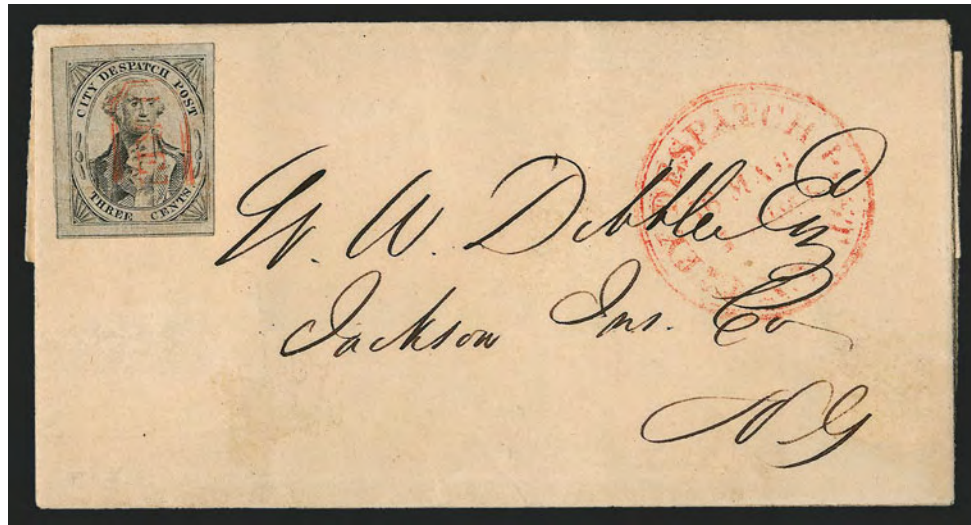 CITY DESPATCH POST
THREE CENTS
DESPATCH
MAR
W. Dibblee Esq
Jackson Ins. Co
N Y